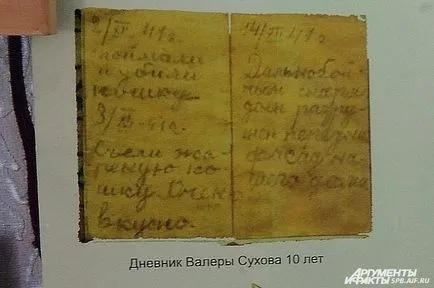 2/XII 41 г.
поймали
и убили
кошку.
3/XII-41 г.
Съели жа-
реную ко-
шку. Очень
вкусно
14/XII 41 г.
Дальнобой-
ным снаря-
дом разру-
шен
фасад на-
шего дома
Дневник Валеры Сухова 10 лет
АРГУМЕНТЫ
И ФАКТЫ SPB.AIF.RU